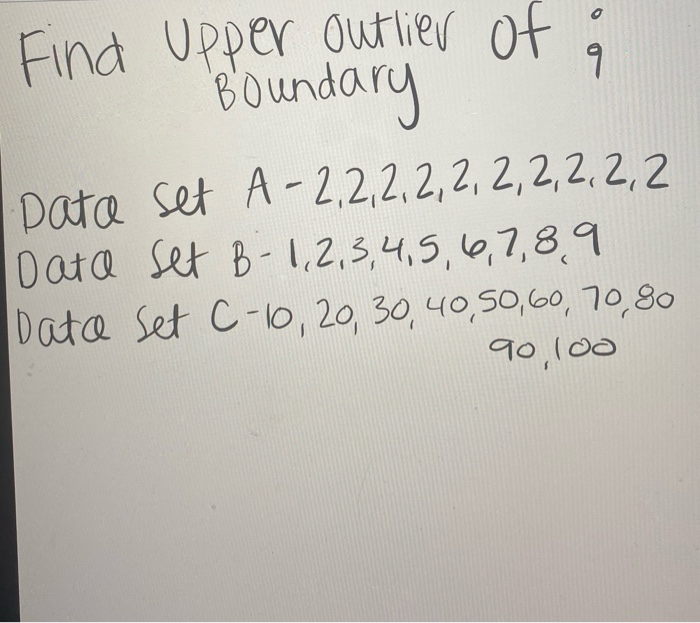 Find Upper outlier of :
Boundary
Data set A - 2,2,2,2,2,2,2,2,2,2
Data set B - 1,2,3,4,5,6,7,8,9
Data set C - 10, 20, 30, 40, 50, 60, 70, 80
90, 100